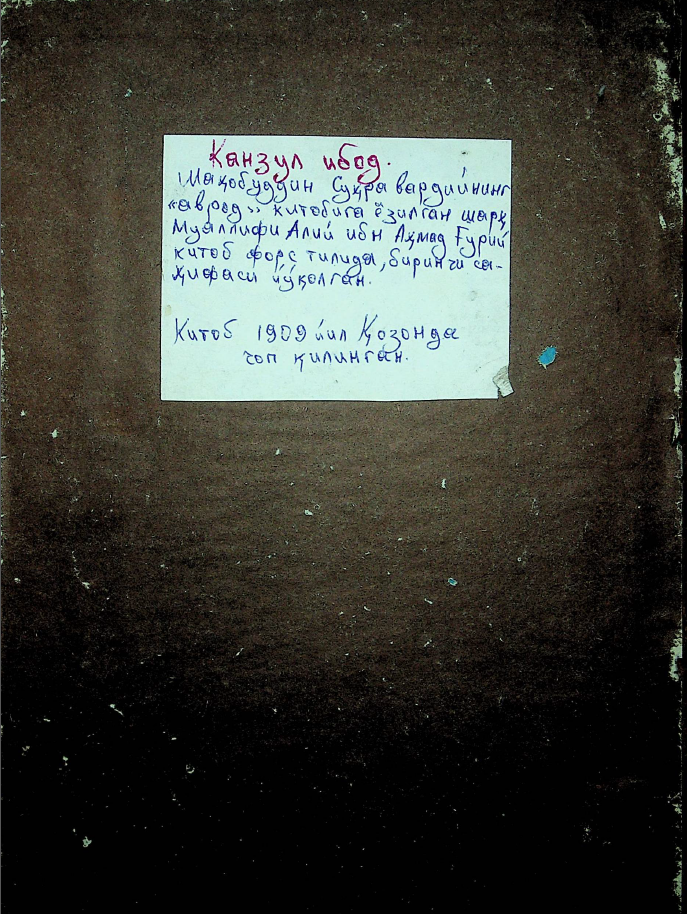 Канзул ибод.
Шаҳобуддин Суҳравардийнинг
«аврод» китобига ёзилган шарҳ
Муаллифи Алий ибн Аҳмад Ғурий
китоб форс тилида, биринчи са-
ҳифаси йўқолган.
Китоб 1909 йил Қозонда
чоп қилинган.